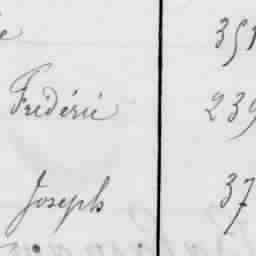 e 351
Frédéric 239
Joseph 37